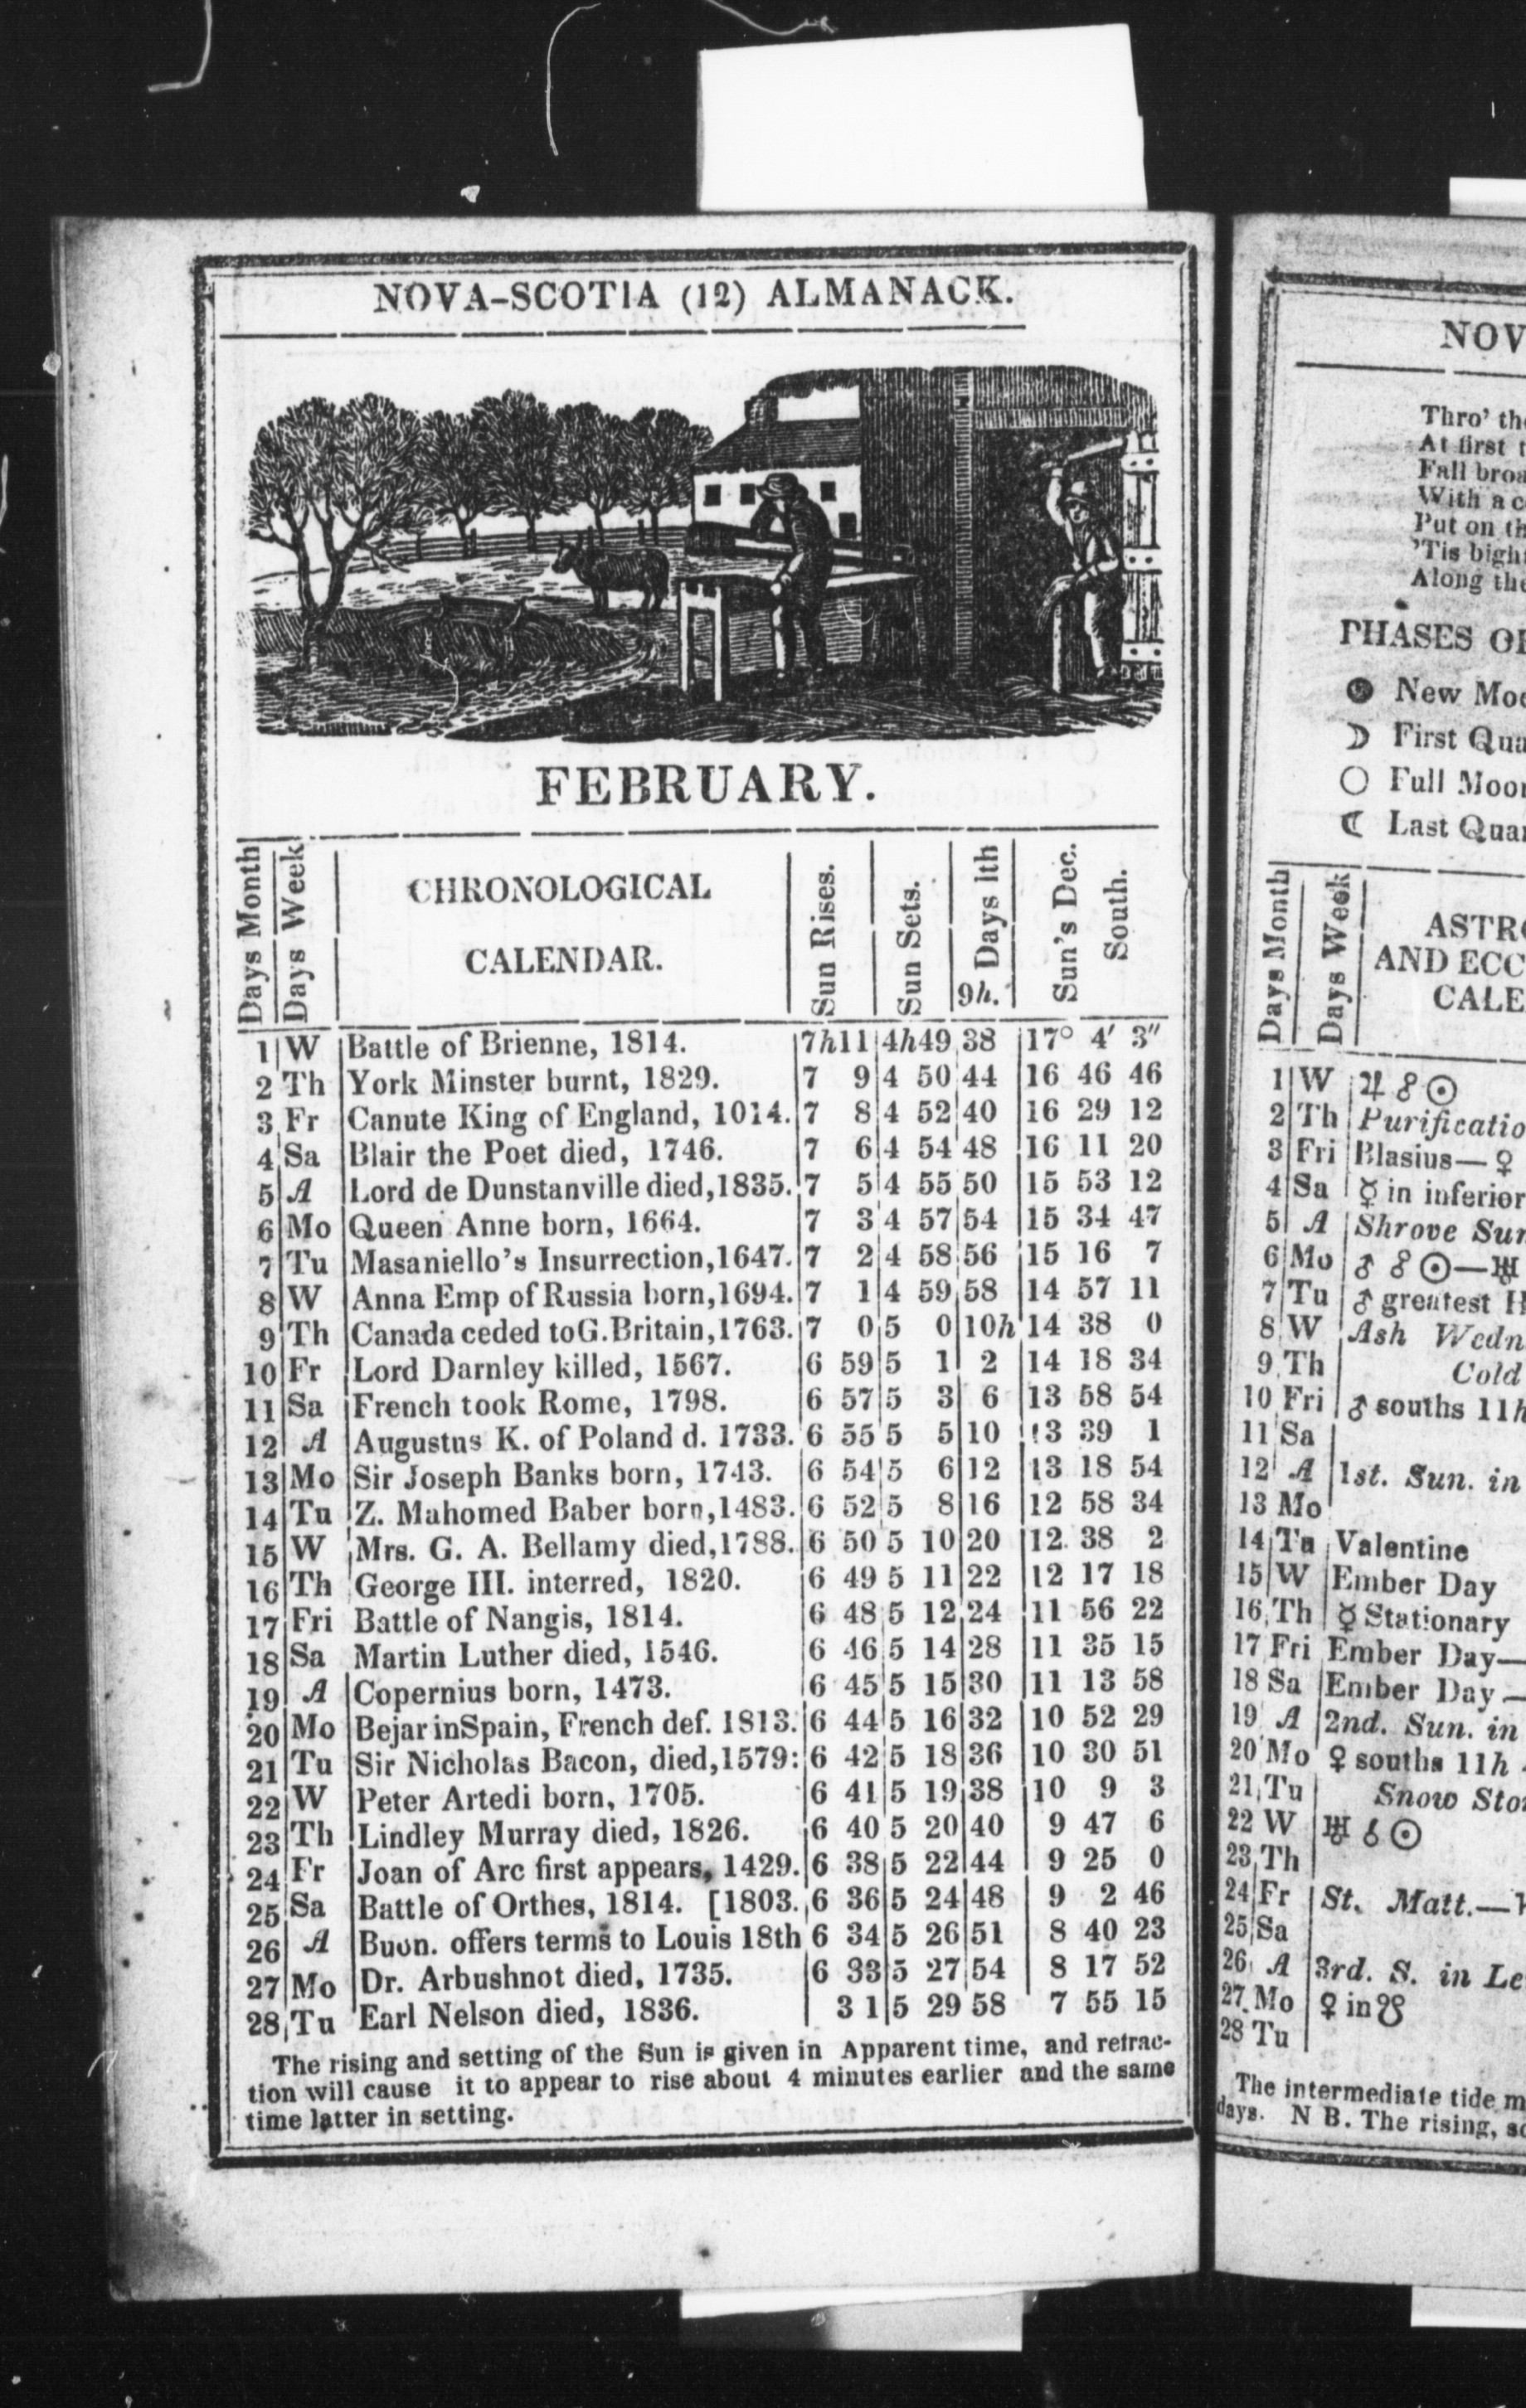 NOVA-SCOTIA (12) ALMANACK.
FEBRUARY.
Days Month
Days Week
CHRONOLOGICAL
CALENDAR.
Sun Rises.
Sun Sets.
Days lth
9h.
Sun's Dec.
South.
1 W Battle of Brienne, 1814. 7h11 4h49 38 17° 4′ 3″
2 Th York Minster burnt, 1829. 7 9 4 50 44 16 46 46
3 Fr Canute King of England, 1014. 7 8 4 52 40 16 29 12
4 Sa Blair the Poet died, 1746. 7 6 4 54 48 16 11 20
5 A Lord de Dunstanville died,1835. 7 5 4 55 50 15 53 12
6 Mo Queen Anne born, 1664. 7 3 4 57 54 15 34 47
7 Tu Masaniello's Insurrection,1647. 7 2 4 58 56 15 16 7
8 W Anna Emp of Russia born,1694. 7 1 4 59 58 14 57 11
9 Th Canada ceded toG.Britain,1763. 7 0 5 0 10h 14 38 0
10 Fr Lord Darnley killed, 1567. 6 59 5 1 2 14 18 34
11 Sa French took Rome, 1798. 6 57 5 3 6 13 58 54
12 A Augustus K. of Poland d. 1733. 6 55 5 5 10 13 39 1
13 Mo Sir Joseph Banks born, 1743. 6 54 5 6 12 13 18 54
14 Tu Z. Mahomed Baber born,1483. 6 52 5 8 16 12 58 34
15 W Mrs. G. A. Bellamy died,1788. 6 50 5 10 20 12 38 2
16 Th George III. interred, 1820. 6 49 5 11 22 12 17 18
17 Fri Battle of Nangis, 1814. 6 48 5 12 24 11 56 22
18 Sa Martin Luther died, 1546. 6 46 5 14 28 11 35 15
19 A Copernius born, 1473. 6 45 5 15 30 11 13 58
20 Mo Bejar inSpain, French def. 1813. 6 44 5 16 32 10 52 29
21 Tu Sir Nicholas Bacon, died,1579: 6 42 5 18 36 10 30 51
22 W Peter Artedi born, 1705. 6 41 5 19 38 10 9 3
23 Th Lindley Murray died, 1826. 6 40 5 20 40 9 47 6
24 Fr Joan of Arc first appears, 1429. 6 38 5 22 44 9 25 0
25 Sa Battle of Orthes, 1814. [1803. 6 36 5 24 48 9 2 46
26 A Buon. offers terms to Louis 18th 6 34 5 26 51 8 40 23
27 Mo Dr. Arbushnot died, 1735. 6 33 5 27 54 8 17 52
28 Tu Earl Nelson died, 1836. 3 1 5 29 58 7 55 15
The rising and setting of the Sun is given in Apparent time, and refrac-
tion will cause it to appear to rise about 4 minutes earlier and the same
time latter in setting.
NOV
Thro' the
At first
Fall broa
With a c
Put on th
'Tis bigh
Along the
PHASES OF
● New Moo
☽ First Qua
○ Full Moon
☾ Last Quar
Days Month
Days Week
ASTRO
AND ECC
CALE
1 W ♃ ☍ ☉
2 Th Purificatio
3 Fri Blasius—♀
4 Sa ☿ in inferior
5 A Shrove Sun
6 Mo ♂ ☍ ☉—♅
7 Tu ♂ greatest H
8 W Ash Wedn
9 Th Cold
10 Fri ♂ souths 11h
11 Sa
12 A 1st. Sun. in
13 Mo
14 Tu Valentine
15 W Ember Day
16 Th ☿ Stationary
17 Fri Ember Day—
18 Sa Ember Day—
19 A 2nd. Sun. in
20 Mo ♀ souths 11h
21 Tu Snow Sto
22 W ♅ ☌ ☉
23 Th
24 Fr St. Matt.—
25 Sa
26 A 3rd. S. in Le
27 Mo ♀ in ☋
28 Tu
The intermediate tide m
days. N B. The rising, s